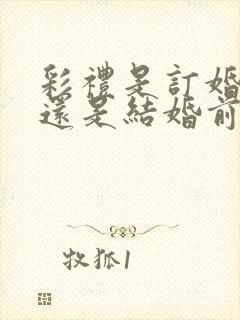 彩禮是訂婚
還是結婚前
牧狐1